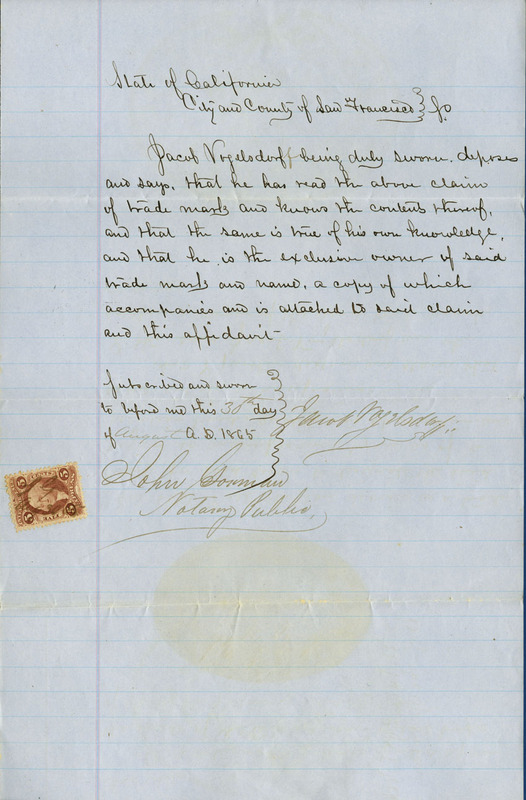 State of California
City and County of San Francisco } ss
Jacob Vogelsdorff being duly sworn, deposes
and says, that he has read the above claim
of trade mark and knows the contents thereof,
and that the same is true of his own knowledge,
and that he is the exclusive owner of said
trade mark and name, a copy of which
accompanies and is attached to said claim
and this affidavit
Subscribed and sworn
to before me this 30th day
of August A.D. 1865
Jacob Vogelsdorff
John
Notary Public
5 5
5 5